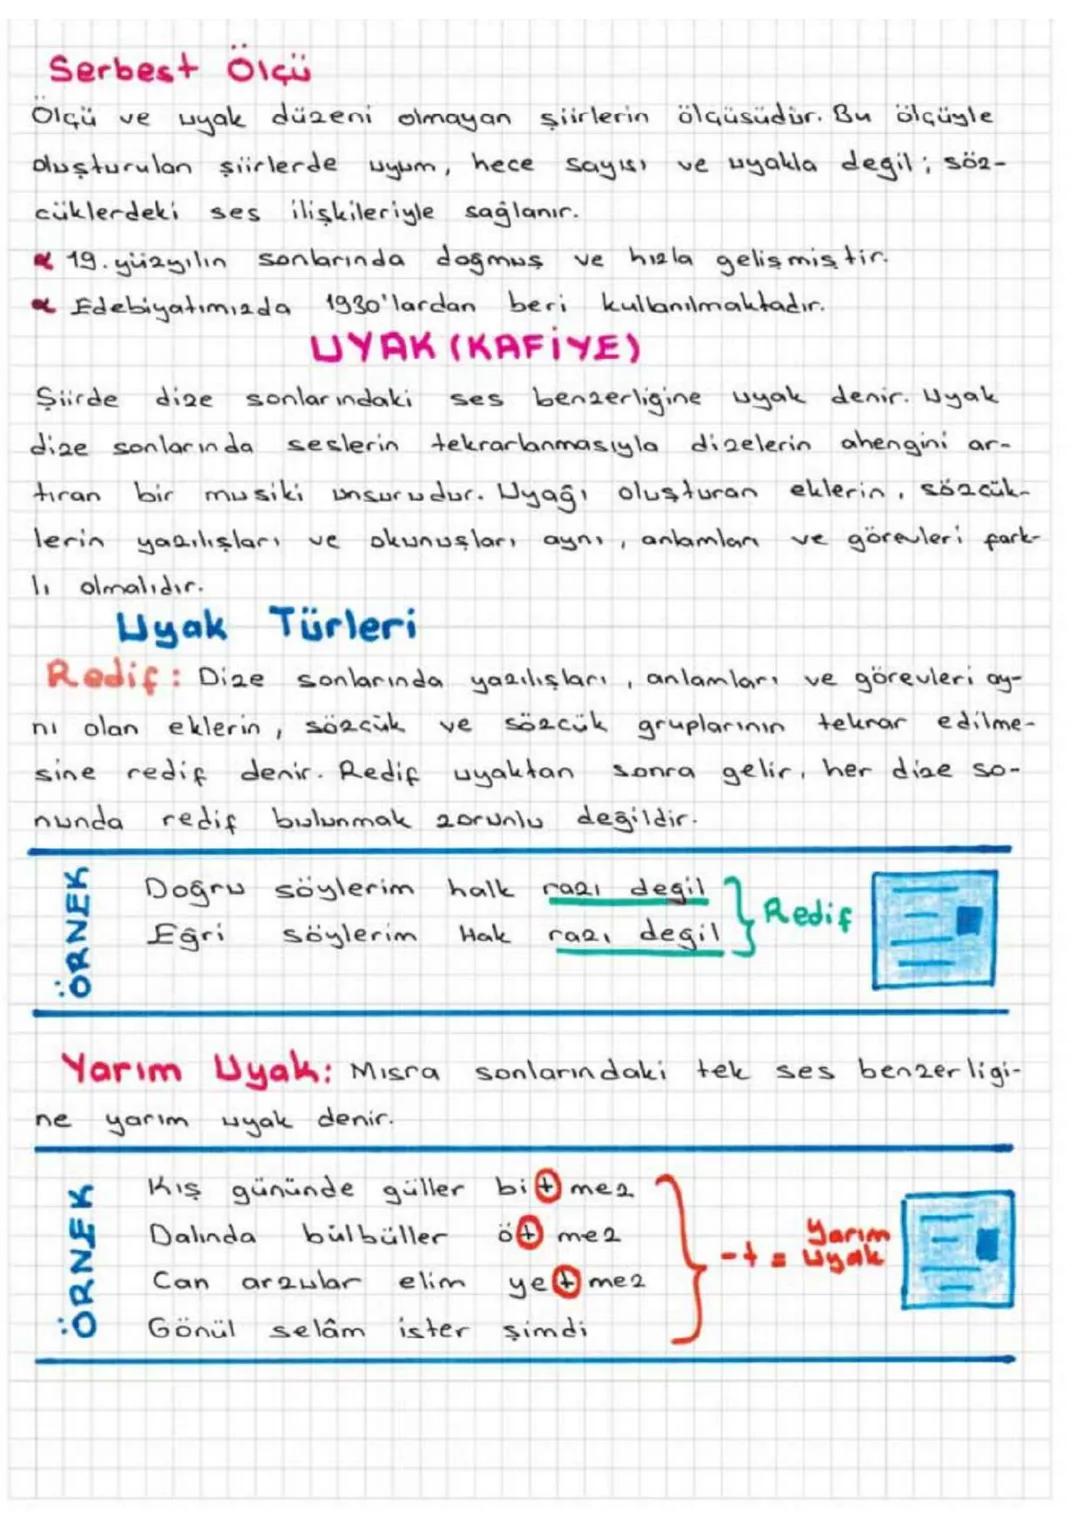 Serbest Ölçü
Ölçü ve uyak düzeni olmayan şiirlerin ölçüsüdür. Bu ölçüyle
oluşturulan şiirlerde uyum, hece sayısı ve uyakla değil; söz-
cüklerdeki ses ilişkileriyle sağlanır.
19. yüzyılın sonlarında doğmuş ve hızla gelişmiştir.
Edebiyatımızda 1930'lardan beri kullanılmaktadır.
UYAK (KAFİYE)
Şiirde dize sonlarındaki ses benzerliğine uyak denir. Uyak
dize sonlarında seslerin tekrarlanmasıyla dizelerin ahengini ar-
tıran bir musiki unsurudur. Uyağı oluşturan eklerin, sözcük-
lerin yazılışları ve okunuşları aynı, anlamları ve görevleri fark-
lı olmalıdır.
Uyak Türleri
Redif: Dize sonlarında yazılışları, anlamları ve görevleri ay-
nı olan eklerin, sözcük ve sözcük gruplarının tekrar edilme-
sine redif denir. Redif uyaktan sonra gelir, her dize so-
nunda redif bulunmak zorunlu değildir.
ÖRNEK
Doğru söylerim halk razı değil
Eğri söylerim Hak razı değil
Redif
Yarım Uyak: Mısra sonlarındaki tek ses benzerliği-
ne yarım uyak denir.
ÖRNEK
Kış gününde güller bitmez
Dalında bülbüller ötmez
Can arzular elim yetmez
Gönül selâm ister şimdi
-t = Yarım
Uyak